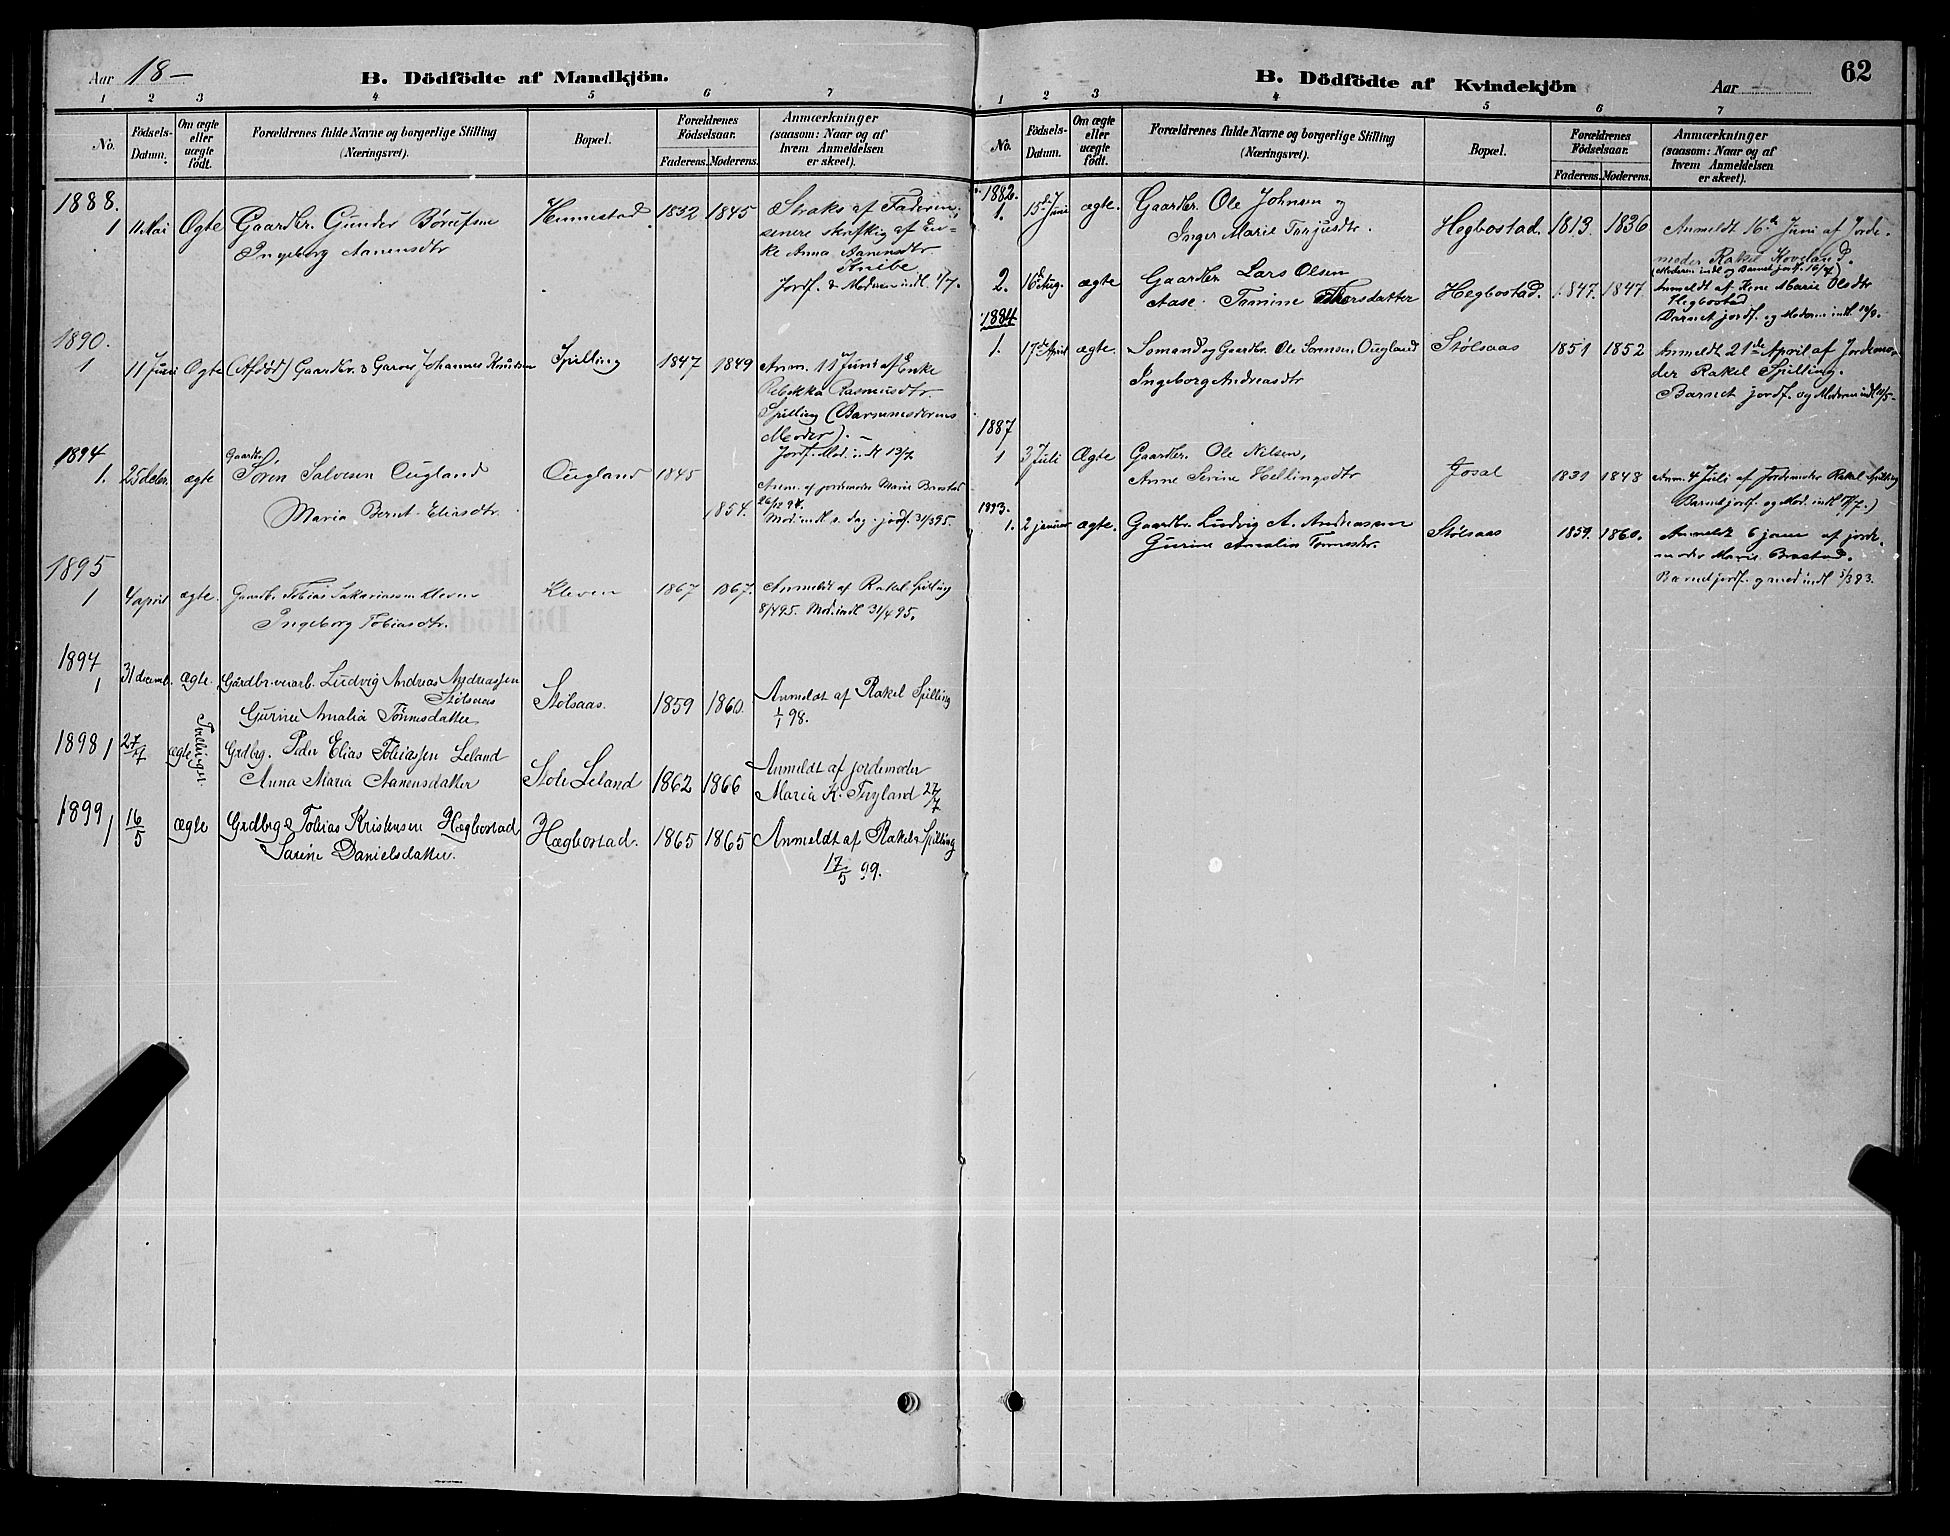 Aar 18-
B. Dödfödte af Mandkjön.
1 2 3 4 5 6 7
No.
Födsels-
Datum.
Om ægte
eller
uægte
födt.
Forældrenes fulde Navne og borgerlige Stilling
(Næringsvei).
Bopæl.
Forældrenes
Födselsaar.
Faderens. Moderens.
Anmærkninger
(saasom: Naar og af
hvem Anmeldelsen
er skeet).
1888.
1 11 Mai Ægte Gaardbr. Gunder
Ingeborg Aanensdtr
Hennestad 1832 1845
Straks af Faderen,
senere skriftlig af En-
ke Anna Aanensdtr
Knibe
Jordf. & Moderen indl. 1/7.
1890.
1 11 Juni Ægte (Afdød) Gaardbr. & Garver Johannes Knutsen
Spilling 1847 1849
Anm. 11 Juni af Enke
Rebekka Rasmusdtr
Spilling (Barnemoderens
Moder). -
Jordf. Mod. indl 13/7
1894
1. 25 deber. ægte Gaardbr.
Søren Salvesen Ougland
Maria Bernt. Eliasdtr.
Ougland 1845
1854.
Anm. af jordemoder Marie Brastad
26/12 94.
Mod. indl s. dag. jordf. 31/3 95.
1895
1 4 april ægte. Gaardbr Tobias Sakariassen Kleven
Ingeborg Tobiasdtr.
Kleven 1867 1867.
Anmeldt af Rakel Spilling
8/4 95. Mod. indl 31/4 95.
1897
1 31 decemb. ægte. Gårdbr. Ludvig Andreas Andreassen
Stølsaas
Gurine Amalia Tønnesdatter
Stølsaas. 1859 1860.
Anmeldt af Rakel Spilling
1/1 98.
1898 1 27/7 ægte Tvillinger.
Grdbrg. Peder Elias Tobiassen Leland
Anna Maria Aanensdatter
Leland 1862 1866
Anmeldt af jordemoder
Maria K. Tryland 27/7
1899 1 16/5 ægte Grdbrg Tobias Kristensen Hægbostad
Sarine Danielsdatter.
Hægbostad. 1865 1865
Anmeldt af Rakel Spilling
17/5 99.
B. Dödfödte af Kvindekjön
Aar
62
1 2 3 4 5 6 7
No.
Födsels-
Datum.
Om ægte
eller
uægte
födt.
Forældrenes fulde Navne og borgerlige Stilling
(Næringsvei).
Bopæl.
Forældrenes
Födselsaar.
Faderens. Moderens.
Anmærkninger
(saasom: Naar og af
hvem Anmeldelsen
er skeet).
1882.
1. 15de Juni ægte. Gaardbr. Ole Johnsen og
Inger Marie Terjusdtr.
Hegbostad. 1813. 1836
Anmeldt 16de Juni af Jorde-
moder Rakel Hoveland.
(Moderen indl og Barnet jordf. 16/7)
2. 16de Aug. ægte Gaardbr. Lars Olsen
Aase Tomine Thorsdatter
Hegbostad. 1847. 1847.
Anmeldt af Lene Marie Olsdtr
Hegbostad
Barnet jordf. og Modern indl.
1884
1. 17de April ægte. Sømand og Gaardbr. Ole Sørensen Ougland
Ingeborg Andreasdtr
Stølsaas 1851 1852
Anmeldt 21de April af Jordemo-
der Rakel Spilling.
Barnet jordf. og Moderen indl
1887
1 3 Juli Ægte Gaardbr. Ole Nilsen,
Anne Serine Hellingsdtr
Josal 1831 1848
Anm. 4 Juli af Jordemoder Rakel Spilling
Barnet jordf. og Mod. indl
1893.
1. 2 januar ægte. Gaardbr. Ludvig A. Andreassen
Gurine Amalia Tønnesdtr.
Stølsaas 1859. 1860.
Anmeldt 6 janu af jorde-
moder Marie Brastad.
Barnet jordf. og mod indl 5/3 93.